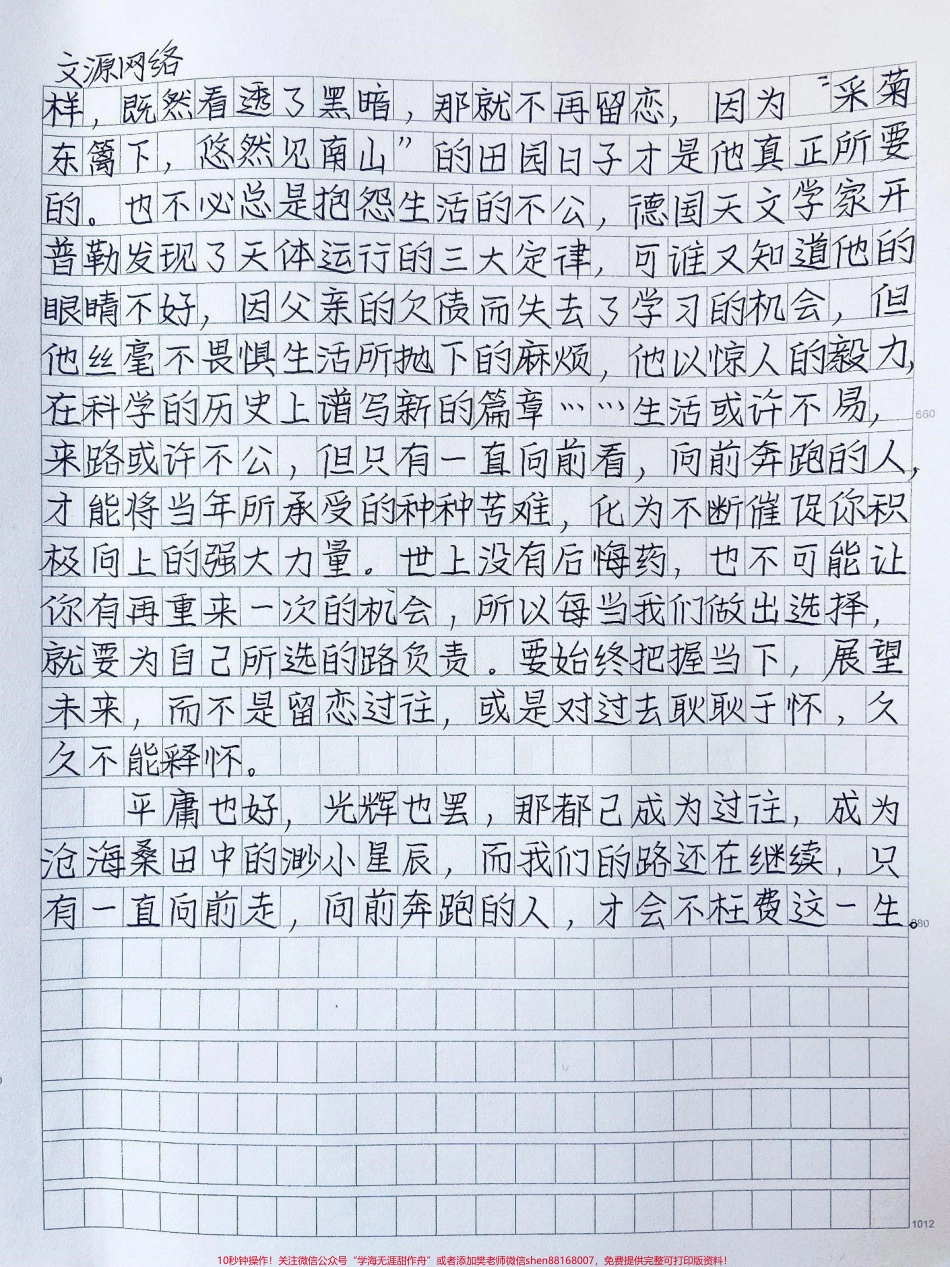 文源网络
样，既然看透了黑暗，那就不再留恋，因为“采菊
东篱下，悠然见南山”的田园日子才是他真正所要
的。也不必总是抱怨生活的不公，德国天文学家开
普勒发现了天体运行的三大定律，可谁又知道他的
眼睛不好，因父亲的欠债而失去了学习的机会，但
他丝毫不畏惧生活所抛下的麻烦，他以惊人的毅力，
在科学的历史上谱写新的篇章……生活或许不易，
660
来路或许不公，但只有一直向前看，向前奔跑的人，
才能将当年所承受的种种苦难，化为不断催促你积
极向上的强大力量。世上没有后悔药，也不可能让
你有再重来一次的机会，所以每当我们做出选择，
就要为自己所选的路负责。要始终把握当下，展望
未来，而不是留恋过往，或是对过去耿耿于怀，久
久不能释怀。
平庸也好，光辉也罢，那都已成为过往，成为
沧海桑田中的渺小星辰，而我们的路还在继续，只
有一直向前走，向前奔跑的人，才会不枉费这一生。
880
1012
10秒钟操作！关注微信公众号“学海无涯甜作舟”或者添加樊老师微信shen88168007，免费提供完整可打印版资料！